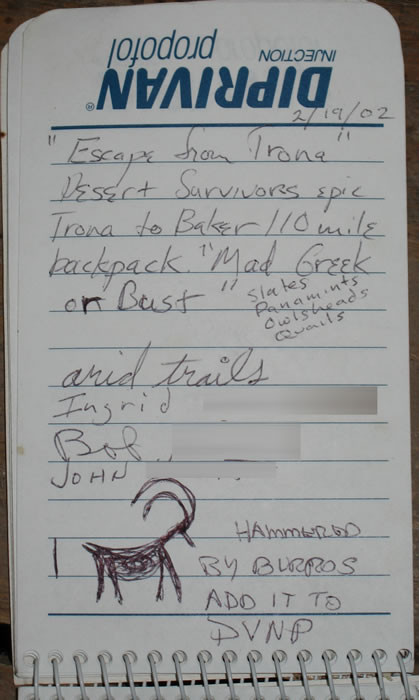 DIPRIVAN®
INJECTION
propofol
2/19/02
"Escape from Trona"
Desert Survivors epic
Trona to Baker 110 mile
backpack. "Mad Greek
or Bust"
Slates
Panamints
Owlsheads
Quails
arid trails
Ingrid
Bob
JOHN
HAMMERED
BY BURROS
ADD IT TO
DVNP